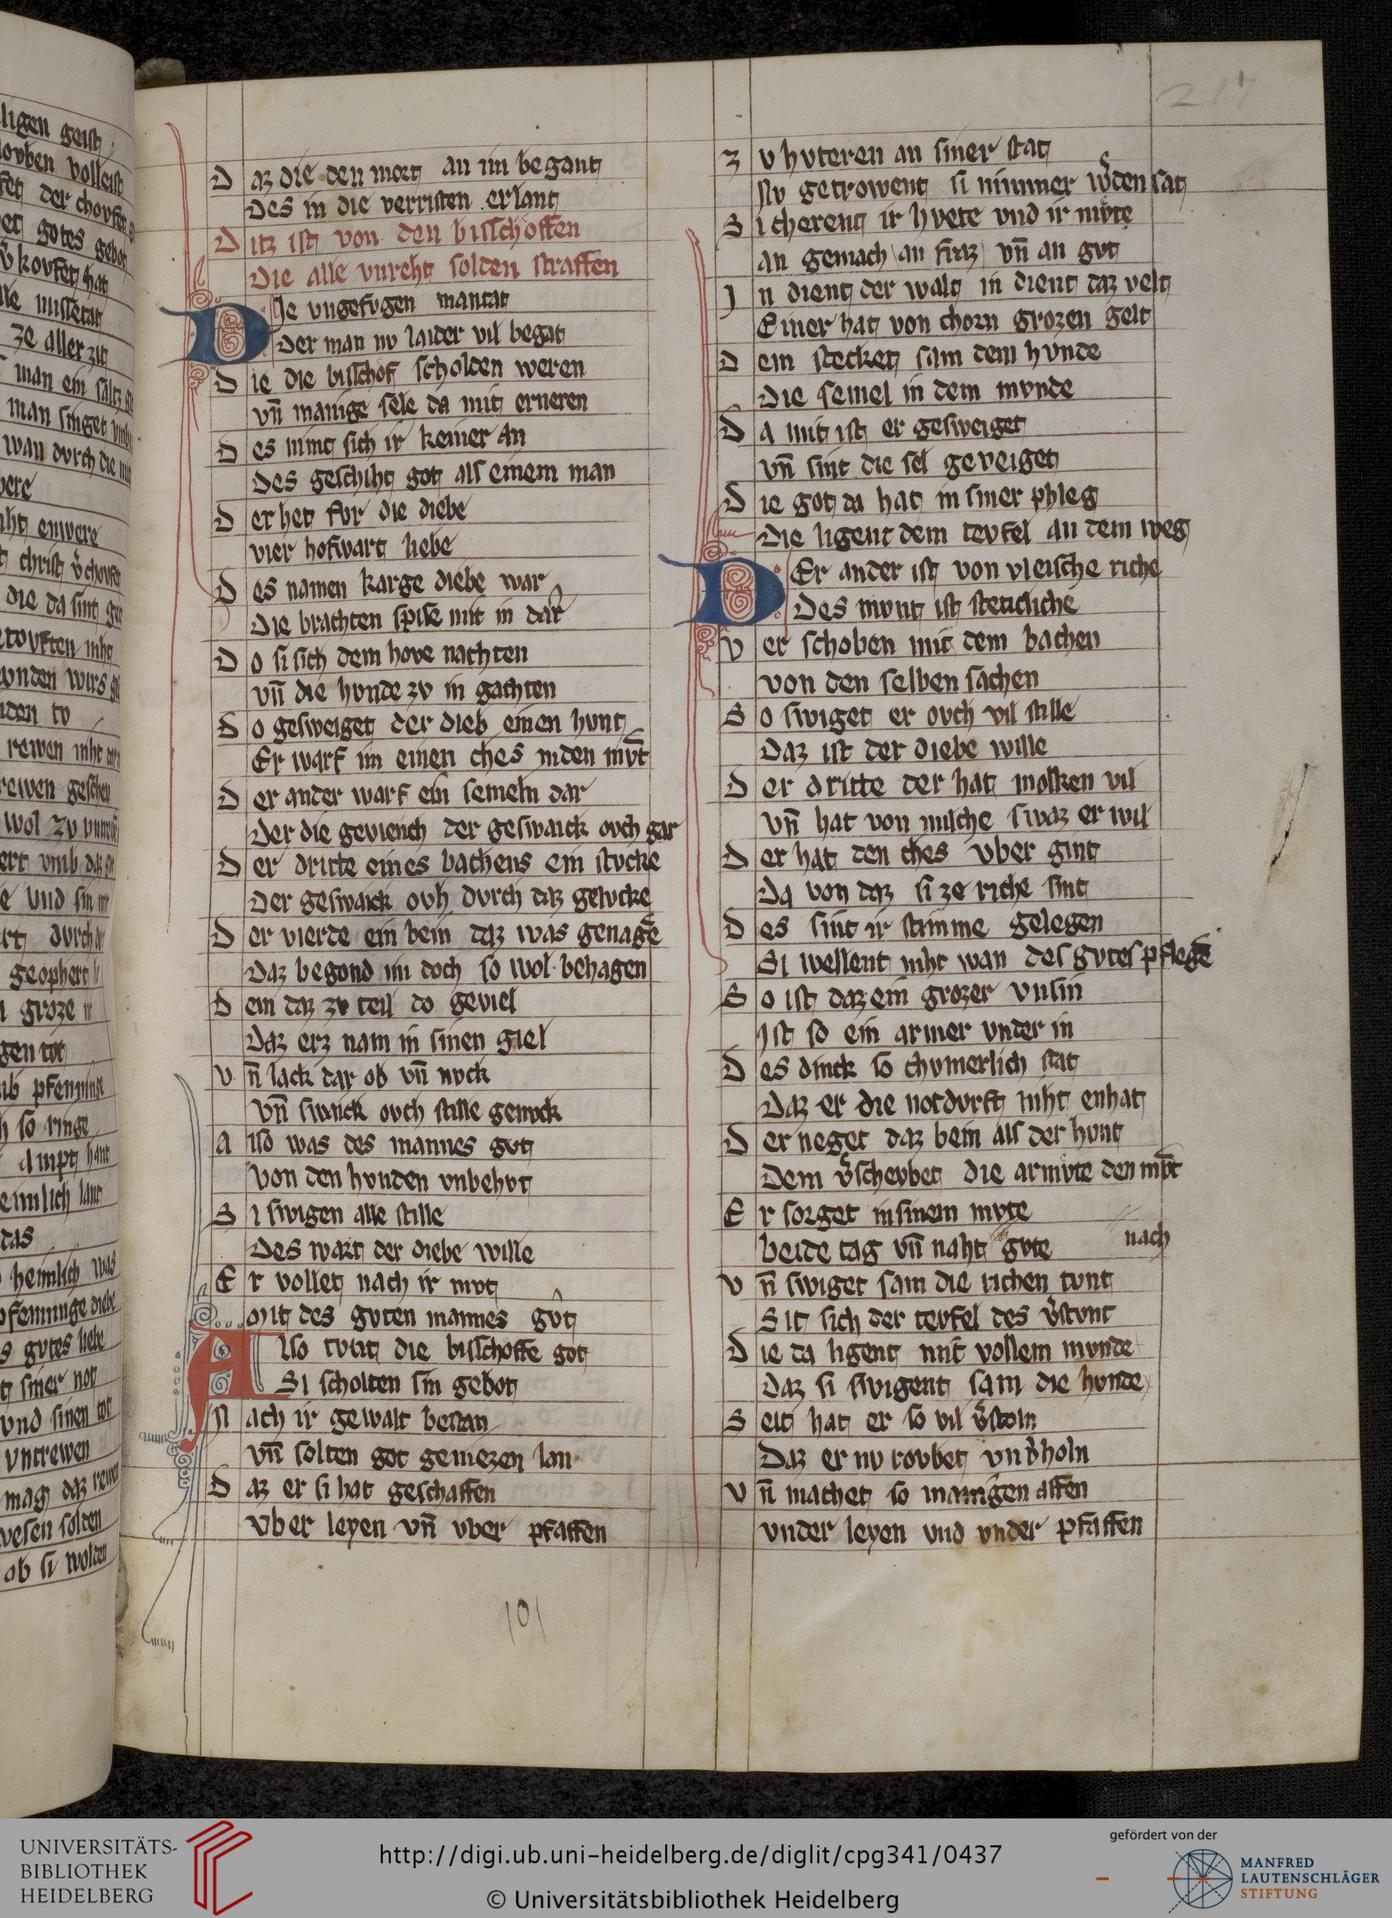 217
Daz die den mort an im begant
Des in die verristen erlant
Ditz ist von den bisschoffen
Die alle vnreht solden straffen
DJe vngefvgen mantat
Der man nv laider vil begat
Die die bisschof scholden weren
Vn̄ manige sele da mit erneren
Des nimt sich ir keiner an
Des geschiht got als einem man
Der het for die diebe
Vier hofwart liebe
Des namen karge diebe war
Die brachten spise mit in dar
Do si sich dem hove nachten
Vn̄ die hvnde zv in gachten
Do gesweiget der dieb einen hvnt
Er warf im einen ches inden mvt
Der ander warf ein semeln dar
Der die geviench der geswaick ovch gar
Der dritte eines bachens ein stvcke
Der geswaick ovh dvrch daz gelvcke
Der vierde ein bein daz was genage
Daz begond im doch so wol behagen
Dem daz zv teil do geviel
Daz erz nam in sinen giel
Vn̄ lack dar ob vn̄ nvck
Vn̄ swaick ovch stille genvck
Also was des mannes gvt
Von den hvnden vnbehvt
Si swigen alle stille
Des wart der diebe wille
Er vollet nach ir mvt
Mit des gvten mannes gvt
Also tvnt die bisschoffe got
Si scholten sin gebot
Nach ir gewalt bestan
Vn̄ solten got geniezen lan
Daz er si hat geschaffen
Vber leyen vn̄ vber pfaffen
101
Zv hvteren an siner stat
Nv getrowent si nimmer wͤden sat
Sicherent ir hvete vnd ir mvte
An gemach an fraz vn̄ an gvt
Jn dient der walt in dient daz velt
Einer hat von chorn grozen gelt
Dem stecket sam dem hvnde
Die semel in dem mvnde
Da mit ist er gesweiget
Vn̄ sint die sel geveiget
Die got da hat in siner phleg
Die ligent dem tevfel an dem weg
DEr ander ist von vleische riche
Des mvnt ist stetichiche
Verschoben mit dem bachen
Von den selben sachen
So swiget er ovch vil stille
Daz ist der diebe wille
Der dritte der hat molken vil
Vn̄ hat von milche swaz er wil
Der hat den ches vber gint
Da von daz si ze riche sint
Des sint ir stimme gelegen
Si wellent niht wan des gvtes pflege
So ist daz ein grozer vnsin
Jst so ein armer vnder in
Des dinck so chvmerlich stat
Daz er die notdvrft niht enhat
Der neget daz bein als der hvnt
Dem vͤschevbet die armvte den mvt
Er sorget insinem mvte
Beide tag vn̄ naht gvte nach
Vn̄ swiget sam die richen tvnt
Sit sich der tevfel des vͤstvnt
Die da ligent mit vollem mvnde
Daz si swigent sam die hvnde
Seit hat er so vil vͤstoln
Daz er nv rovbet vnvͤholn
Vn̄ machet so manigen affen
Vnder leyen vnd vnder pfaffen
UNIVERSITÄTS-
BIBLIOTHEK
HEIDELBERG
http://digi.ub.uni-heidelberg.de/diglit/cpg341/0437
© Universitätsbibliothek Heidelberg
gefördert von der
MANFRED
LAUTENSCHLÄGER
STIFTUNG